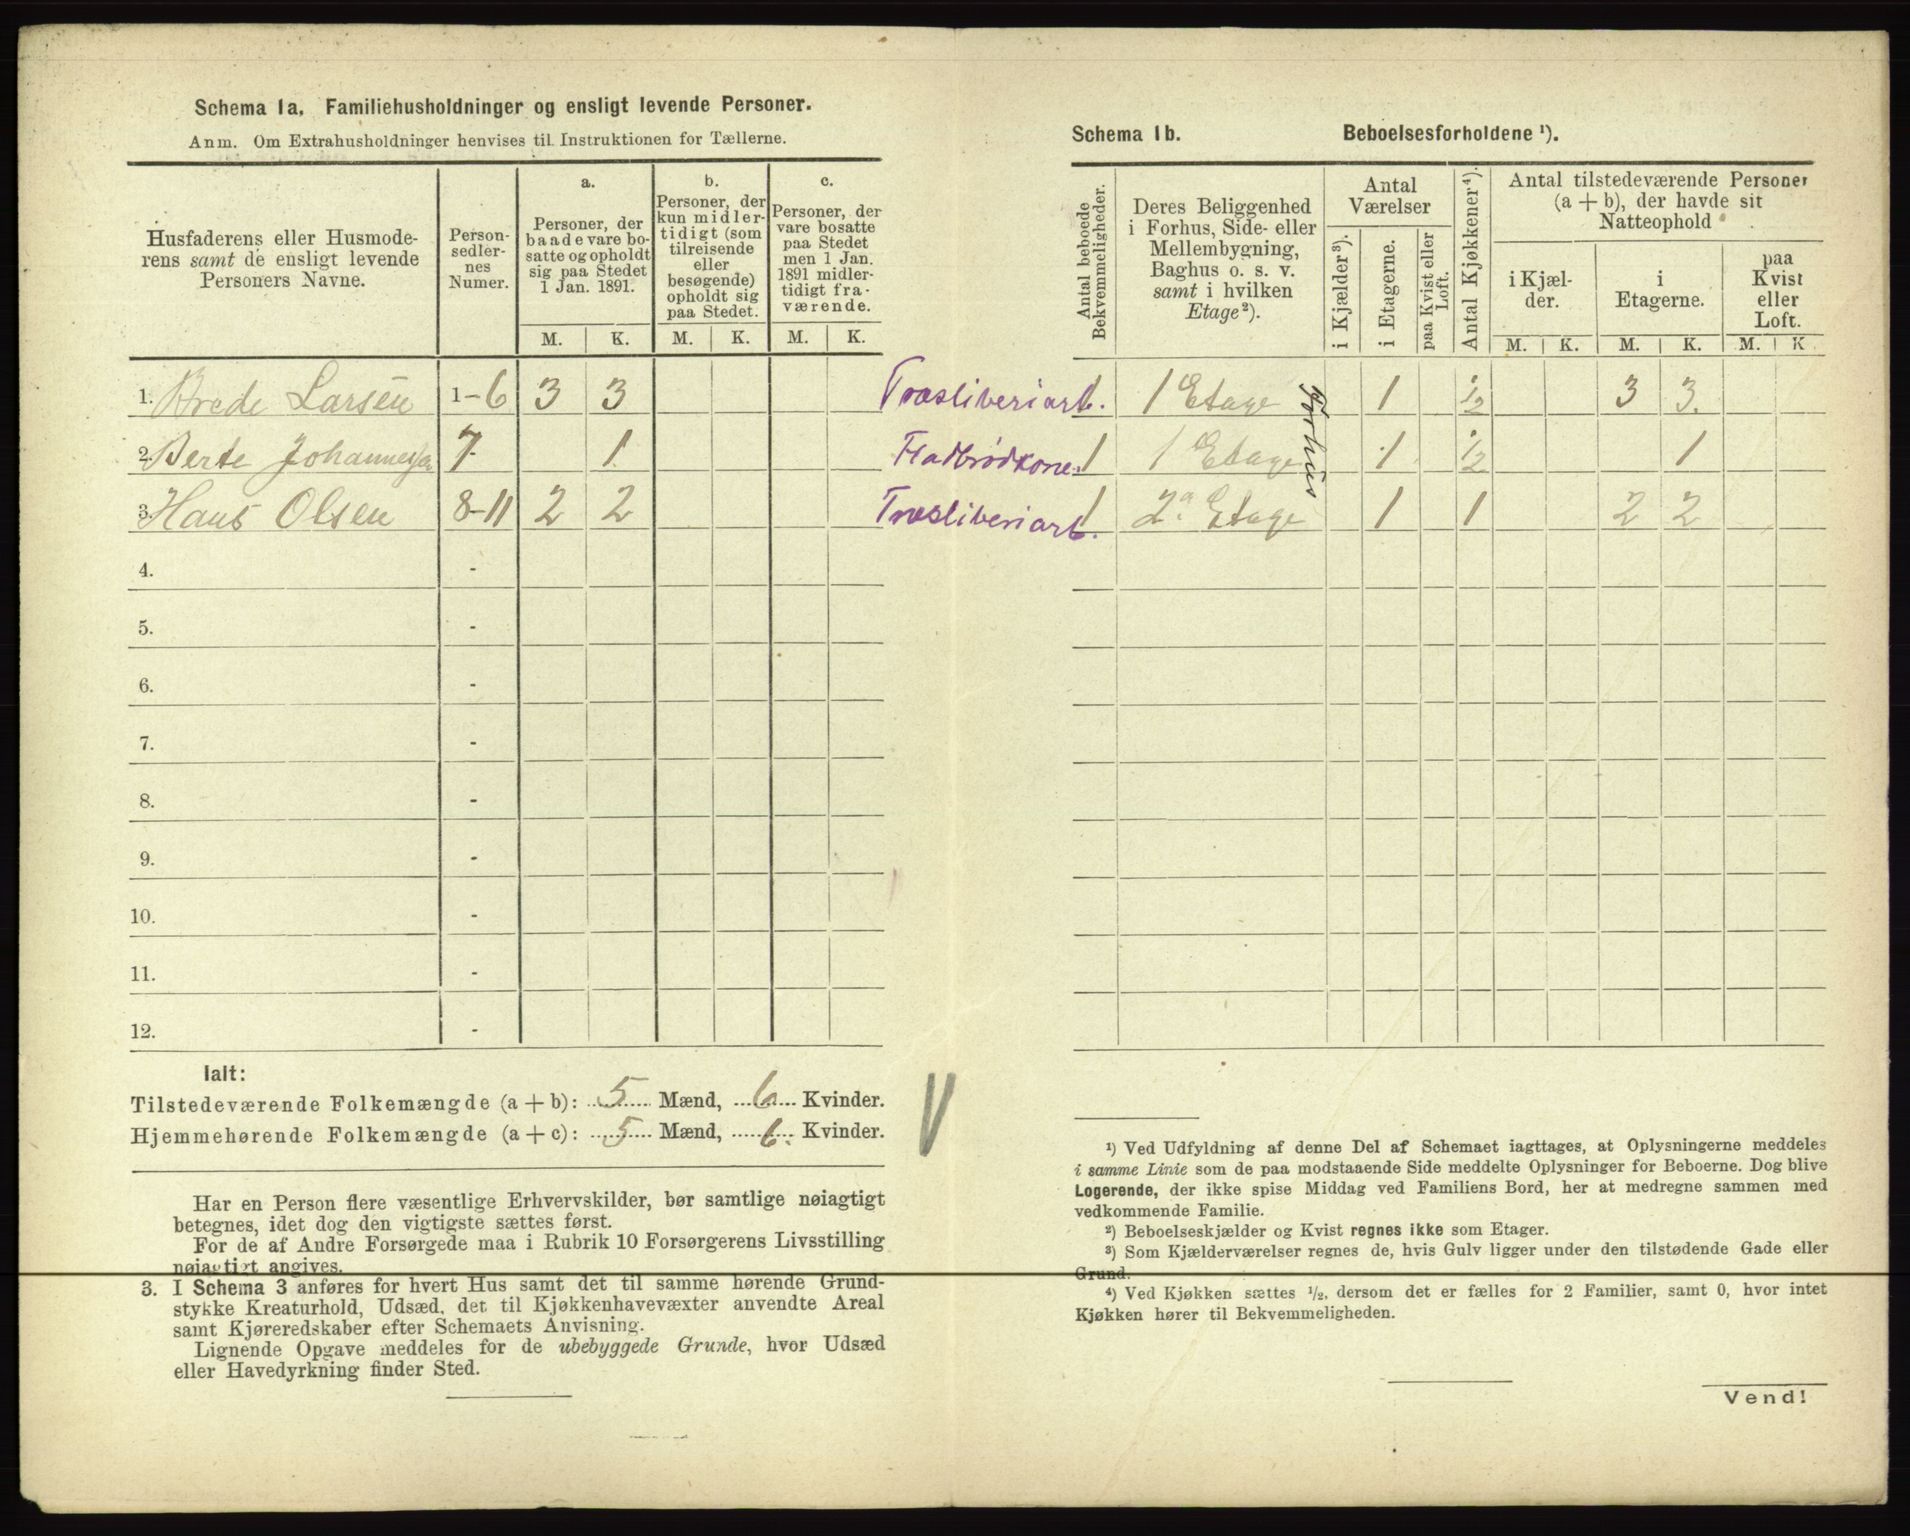 Schema 1a. Familiehusholdninger og ensligt levende Personer.
Anm. Om Extrahusholdninger henvises til Instruktionen for Tællerne.
Husfaderens eller Husmode-
rens samt de ensligt levende
Personers Navne.
Person-
sedler-
nes
Numer.
a.
Personer, der
baade vare bo-
satte og opholdt
sig paa Stedet
1 Jan. 1891.
b.
Personer, der
kun midler-
tidigt (som
tilreisende
eller
besøgende)
opholdt sig
paa Stedet.
c.
Personer, der
vare bosatte
paa Stedet
men 1 Jan.
1891 midler-
tidigt fra-
værende.
M. K. M. K. M. K.
1. Brede Larsen 1-6 3 3
2. Berte Johannessen 7- 1
3. Hans Olsen 8-11 2 2
4. -
5. -
6. -
7. -
8. -
9. -
10. -
11. -
12. -
Ialt:
Tilstedeværende Folkemængde (a + b): 5 Mænd, 6 Kvinder.
Hjemmehørende Folkemængde (a + c): 5 Mænd, 6. Kvinder.
Har en Person flere væsentlige Erhvervskilder, bør samtlige nøiagtigt
betegnes, idet dog den vigtigste sættes først.
For de af Andre Forsørgede maa i Rubrik 10 Forsørgerens Livsstilling
nøiagtigt angives.
3. I Schema 3 anføres for hvert Hus samt det til samme hørende Grund-
stykke Kreaturhold, Udsæd, det til Kjøkkenhavevæxter anvendte Areal
samt Kjøreredskaber efter Schemaets Anvisning.
Lignende Opgave meddeles for de ubebyggede Grunde, hvor Udsæd
eller Havedyrkning finder Sted.
V
Schema 1b. Beboelsesforholdene ¹).
Antal beboede
Bekvemmeligheder.
Deres Beliggenhed
i Forhus, Side- eller
Mellembygning,
Baghus o. s. v.
samt i hvilken
Etage²).
Antal
Værelser
i Kjælder³).
i Etagerne.
paa Kvist eller
Loft.
Antal Kjøkkener⁴).
Antal tilstedeværende Personer
(a + b), der havde sit
Natteophold
i Kjæl-
der.
i
Etagerne.
paa
Kvist
eller
Loft.
M. K. M. K. M. K
Træsliberiarb. 1 1 Etage 1 1/2 3 3.
Fladbrødkone. 1 1 Etage 1 1/2 1
Træsliberiarb. 1 2a Etage 1 1 2 2
Forhus
¹) Ved Udfyldning af denne Del af Schemaet iagttages, at Oplysningerne meddeles
i samme Linie som de paa modstaaende Side meddelte Oplysninger for Beboerne. Dog blive
Logerende, der ikke spise Middag ved Familiens Bord, her at medregne sammen med
vedkommende Familie.
²) Beboelseskjælder og Kvist regnes ikke som Etager.
³) Som Kjælderværelser regnes de, hvis Gulv ligger under den tilstødende Gade eller
Grund.
⁴) Ved Kjøkken sættes ½, dersom det er fælles for 2 Familier, samt 0, hvor intet
Kjøkken hører til Bekvemmeligheden.
Vend!